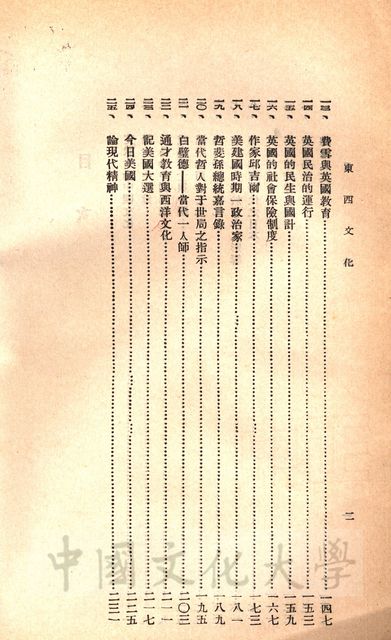 東西文化
二
一三、費雪與英國教育……一四七
一四、英國民治的運行……一五三
一五、英國的民生與國計……一五九
一六、英國的社會保險制度……一六七
一七、作家邱吉爾……一七三
一八、美建國時期一政治家……一八一
一九、哲斐孫總統嘉言錄……一八九
二〇、當代哲人對于世局之指示……一九五
二一、白璧德——當代一人師……二〇三
二二、通才教育與西洋文化……二一一
二三、記美國大選……二一七
二四、今日美國……二二五
二五、論現代精神……二三一
中國文化大學